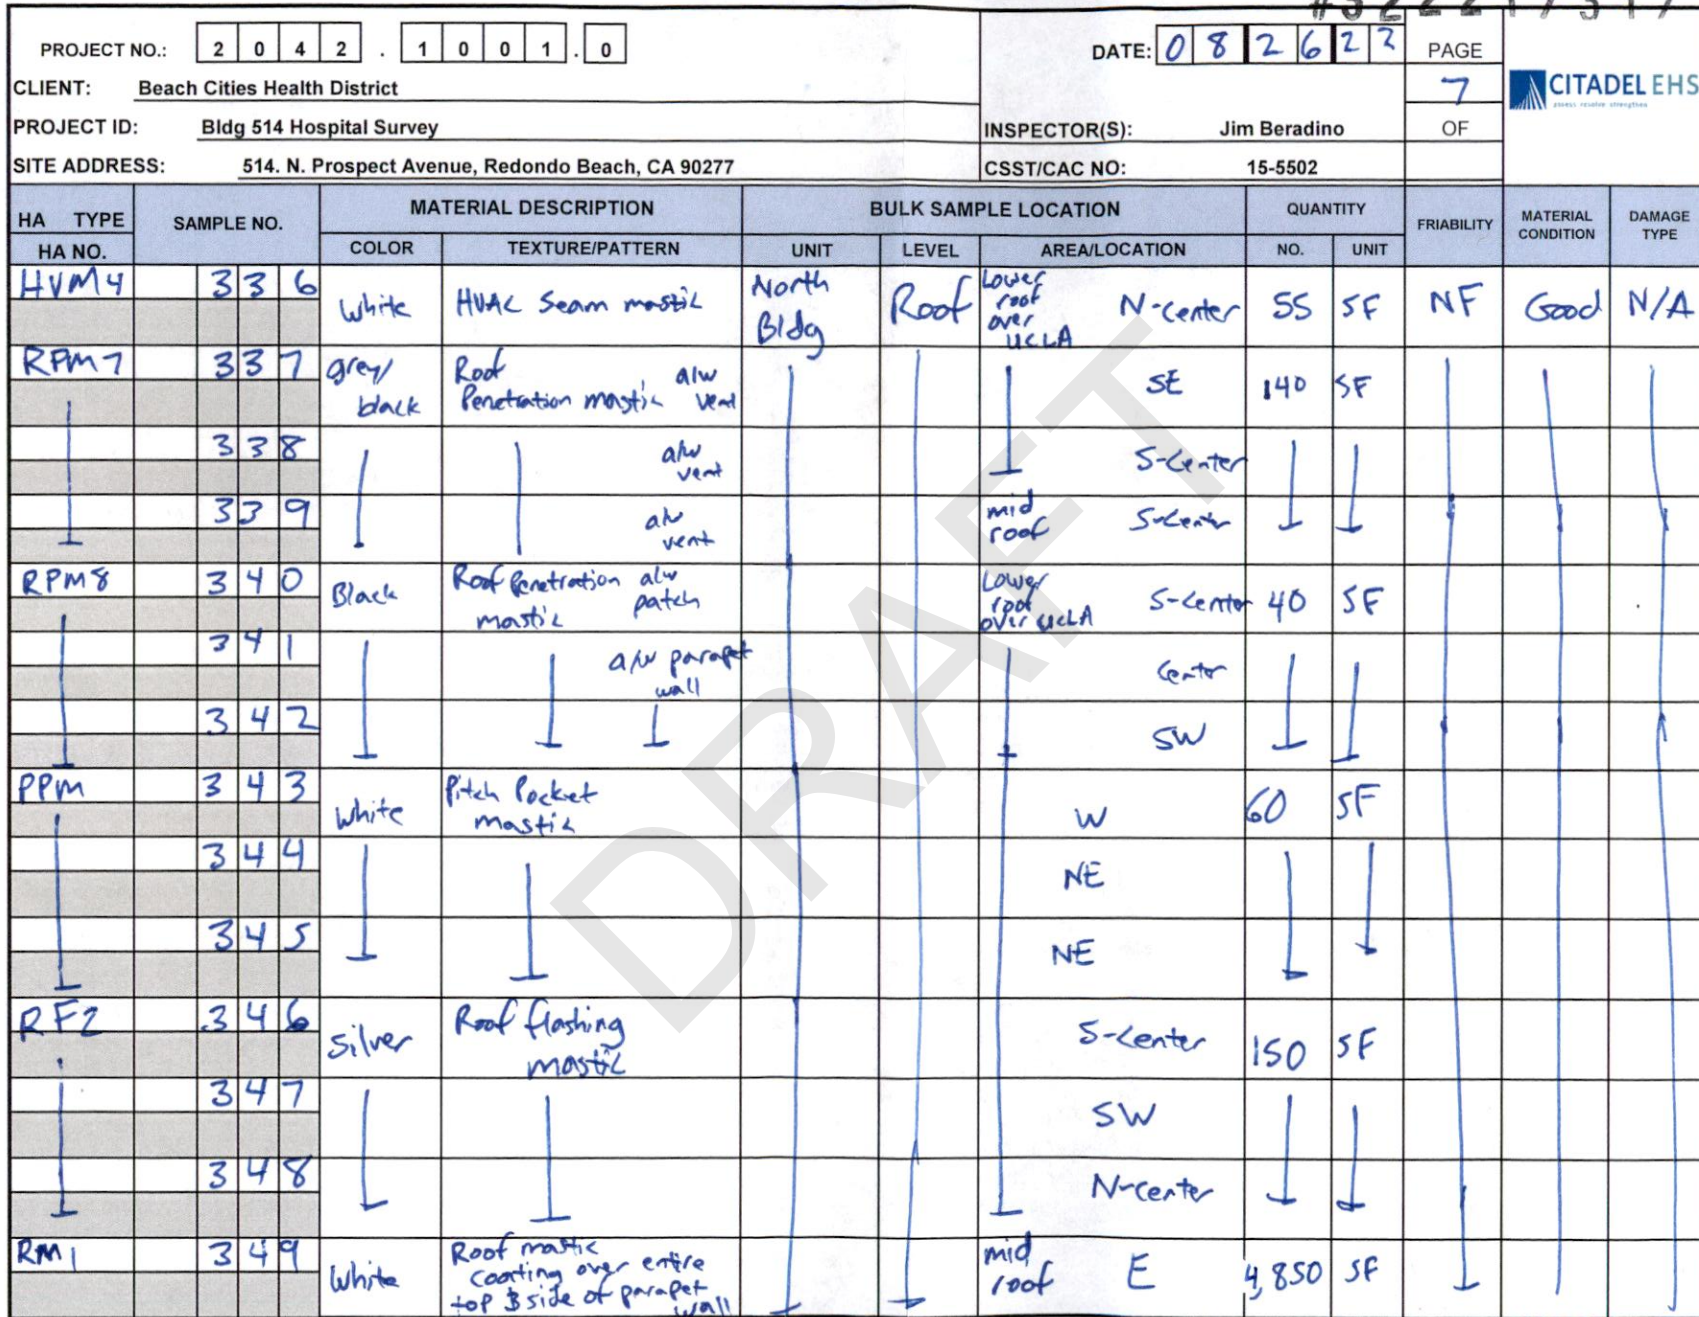 PROJECT NO.: 2 0 4 2 . 1 0 0 1 . 0 DATE: 0 8 2 6 2 2 PAGE
CLIENT: Beach Cities Health District 7 CITADEL EHS
PROJECT ID: Bldg 514 Hospital Survey INSPECTOR(S): Jim Beradino OF
SITE ADDRESS: 514. N. Prospect Avenue, Redondo Beach, CA 90277 CSST/CAC NO: 15-5502
HA TYPE SAMPLE NO. MATERIAL DESCRIPTION BULK SAMPLE LOCATION QUANTITY FRIABILITY MATERIAL CONDITION DAMAGE TYPE
HA NO. COLOR TEXTURE/PATTERN UNIT LEVEL AREA/LOCATION NO. UNIT
HVM4 336 White HVAC Seam mastic North Bldg Roof Lower roof over UCLA N-center 55 SF NF Good N/A
RPM7 337 grey/ black Roof Penetration mastic a/w vent SE 140 SF
338 a/w vent S-center
339 a/w vent mid roof S-center
RPM8 340 Black Roof Penetration mastic a/w patch Lower roof over UCLA S-center 40 SF
341 a/w parapet wall Center
342 SW
PPM 343 White Pitch Pocket mastic W 60 SF
344 NE
345 NE
RF2 346 Silver Roof flashing mastic S-center 150 SF
347 SW
348 N-center
RM1 349 White Roof mastic coating over entire top & side of parapet wall mid roof E 4,850 SF
DRAFT